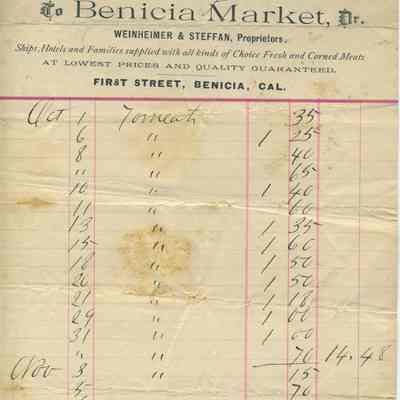 To Benicia Market, Dr.
WEINHEIMER & STEFFAN, Proprietors,
Ships, Hotels and Families supplied with all kinds of Choice Fresh and Corned Meats
AT LOWEST PRICES AND QUALITY GUARANTEED.
FIRST STREET, BENICIA, CAL.
Oct 1 To meat 35
6 " 1 25
8 " 40
" " 65
10 " 1 40
11 " 60
13 " 1 35
15 " 1 60
18 " 1 50
20 " 1 50
21 " 1 18
29 " 1 00
31 " 1 00
" " 70 14.48
Nov 3 " 15
5 " 70